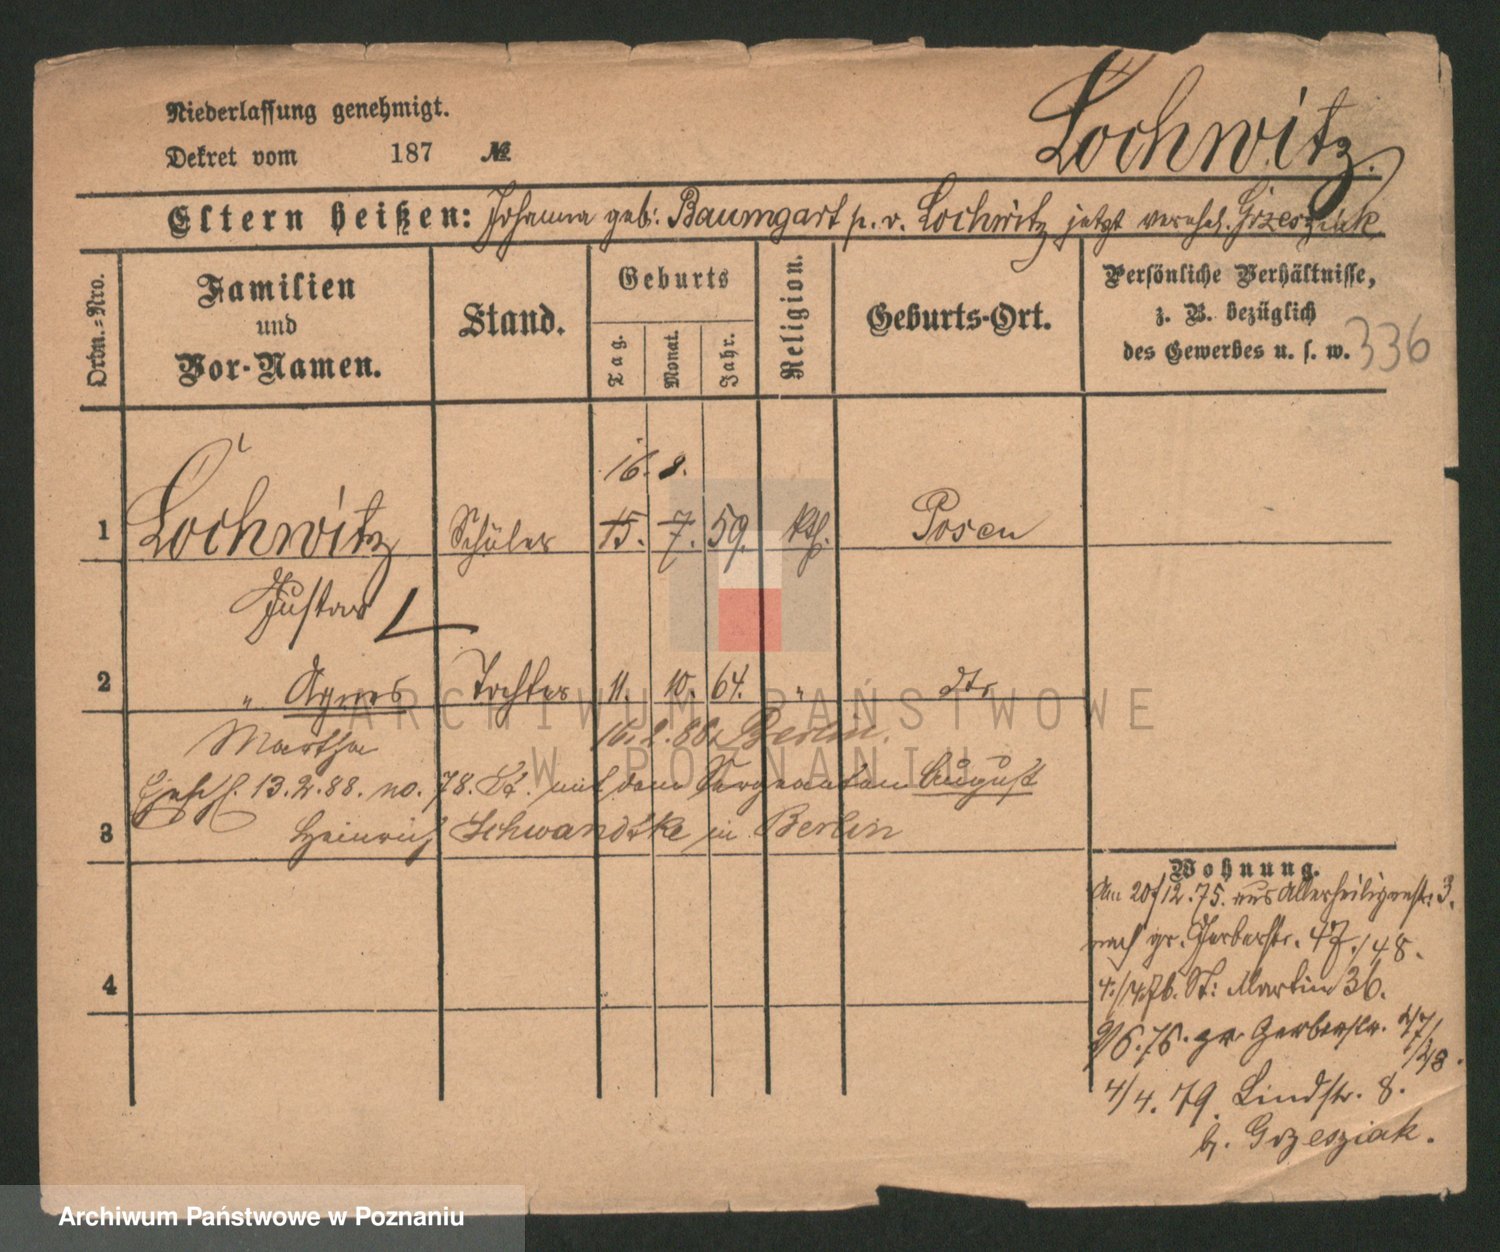 Niederlassung genehmigt.
Dekret vom 187 №
Lochwitz.
Eltern heißen: Johanna geb: Baumgart p. v. Lochwitz jetzt verehel. Grzesziak
Ordn.=Nro.
Familien
und
Vor-Namen.
Stand.
Geburts
Tag.
Monat.
Jahr.
Religion.
Geburts-Ort.
Persönliche Verhältnisse,
z. B. bezüglich
des Gewerbes u. s. w.
336
16. 8.
1 Lochwitz Schüler 15. 7. 59. kth. Posen
Gustav
2 " Agnes Tochter 11. 10. 64. " dto
Martha 16. 2. 88. Berlin.
13.2.88. no. 78. mit dem Sergeanten August
3 Heinrich Schwandtke in Berlin
4
Wohnung.
Am 20/12.75. aus Allerheiligenstr. 3.
nach gr. Gerberstr. 47./48.
4./4.76. St: Martin 36.
9/6.76. gr. Gerberstr. 47/
/48.
4/4.79. Lindstr. 8.
b. Grzesziak.
ARCHIWUM PAŃSTWOWE
W POZNANIU
Archiwum Państwowe w Poznaniu